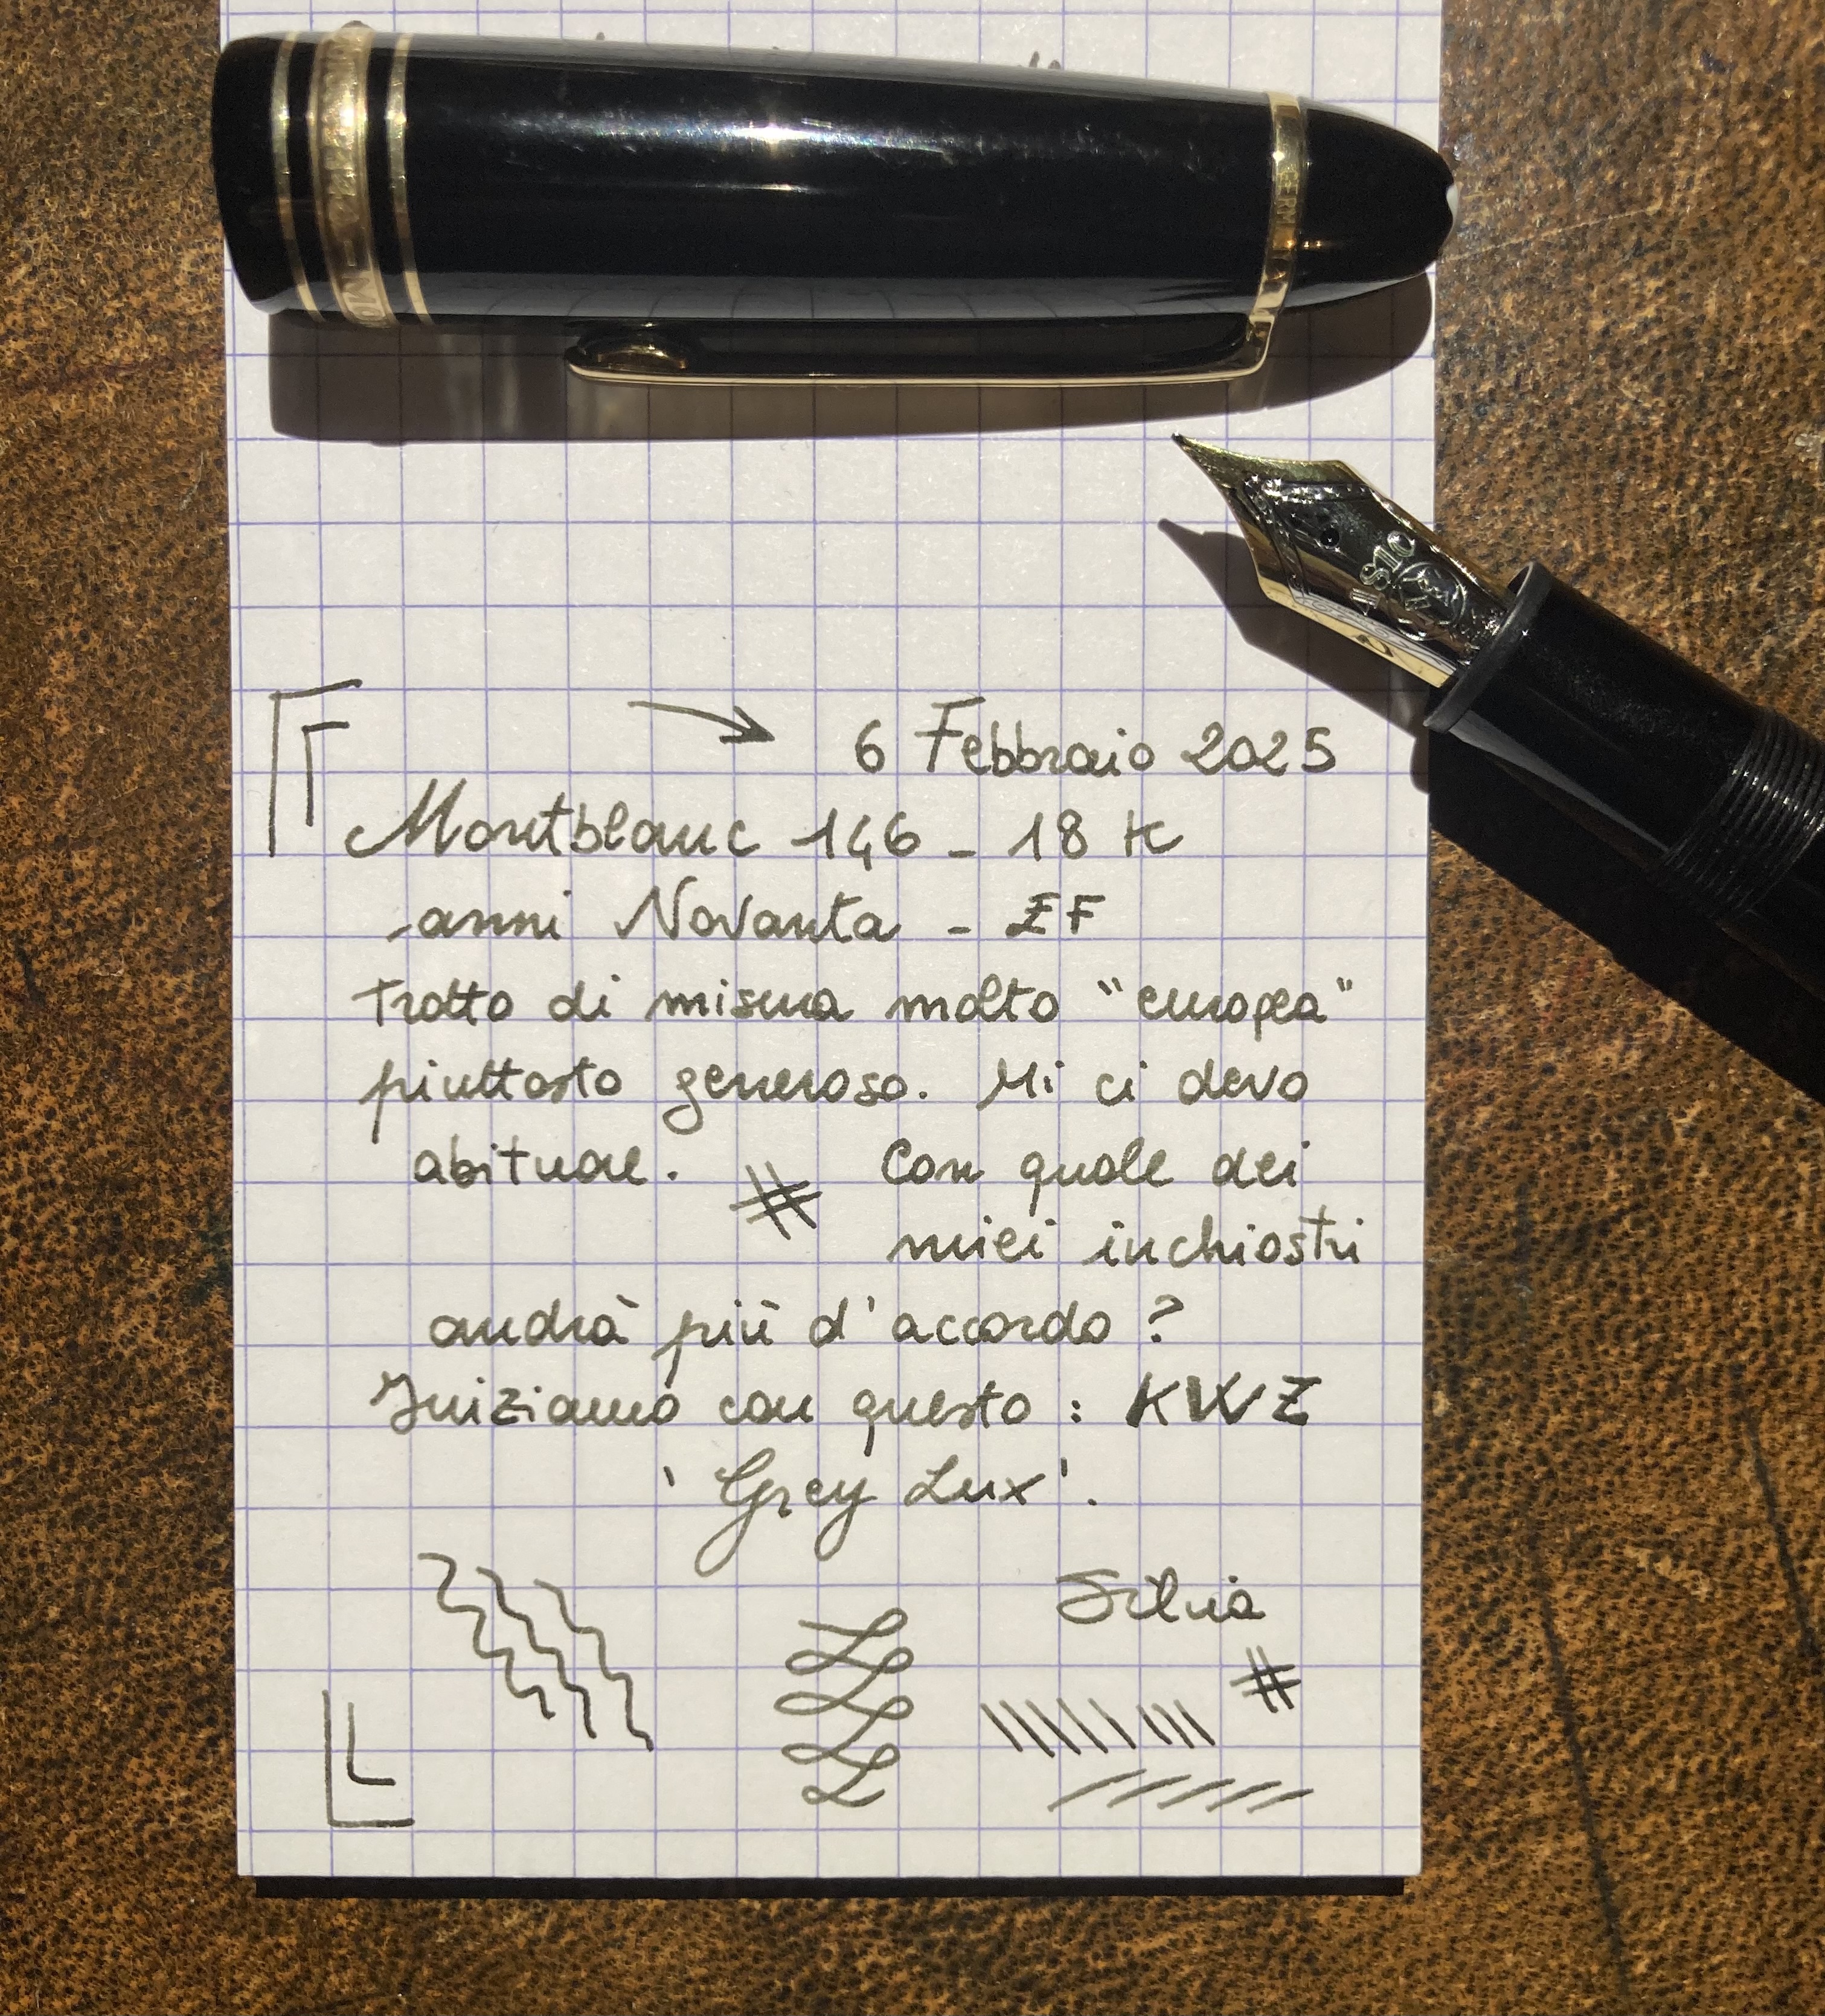 6 Febbraio 2025
Montblanc 146 - 18 K
anni Novanta - EF
Tratto di misura molto "europea"
piuttosto generoso. Mi ci devo
abituare. # Con quale dei
miei inchiostri
andrà più d'accordo?
Iniziamo con questo: KWZ
'Grey Lux'.
Silvia
#